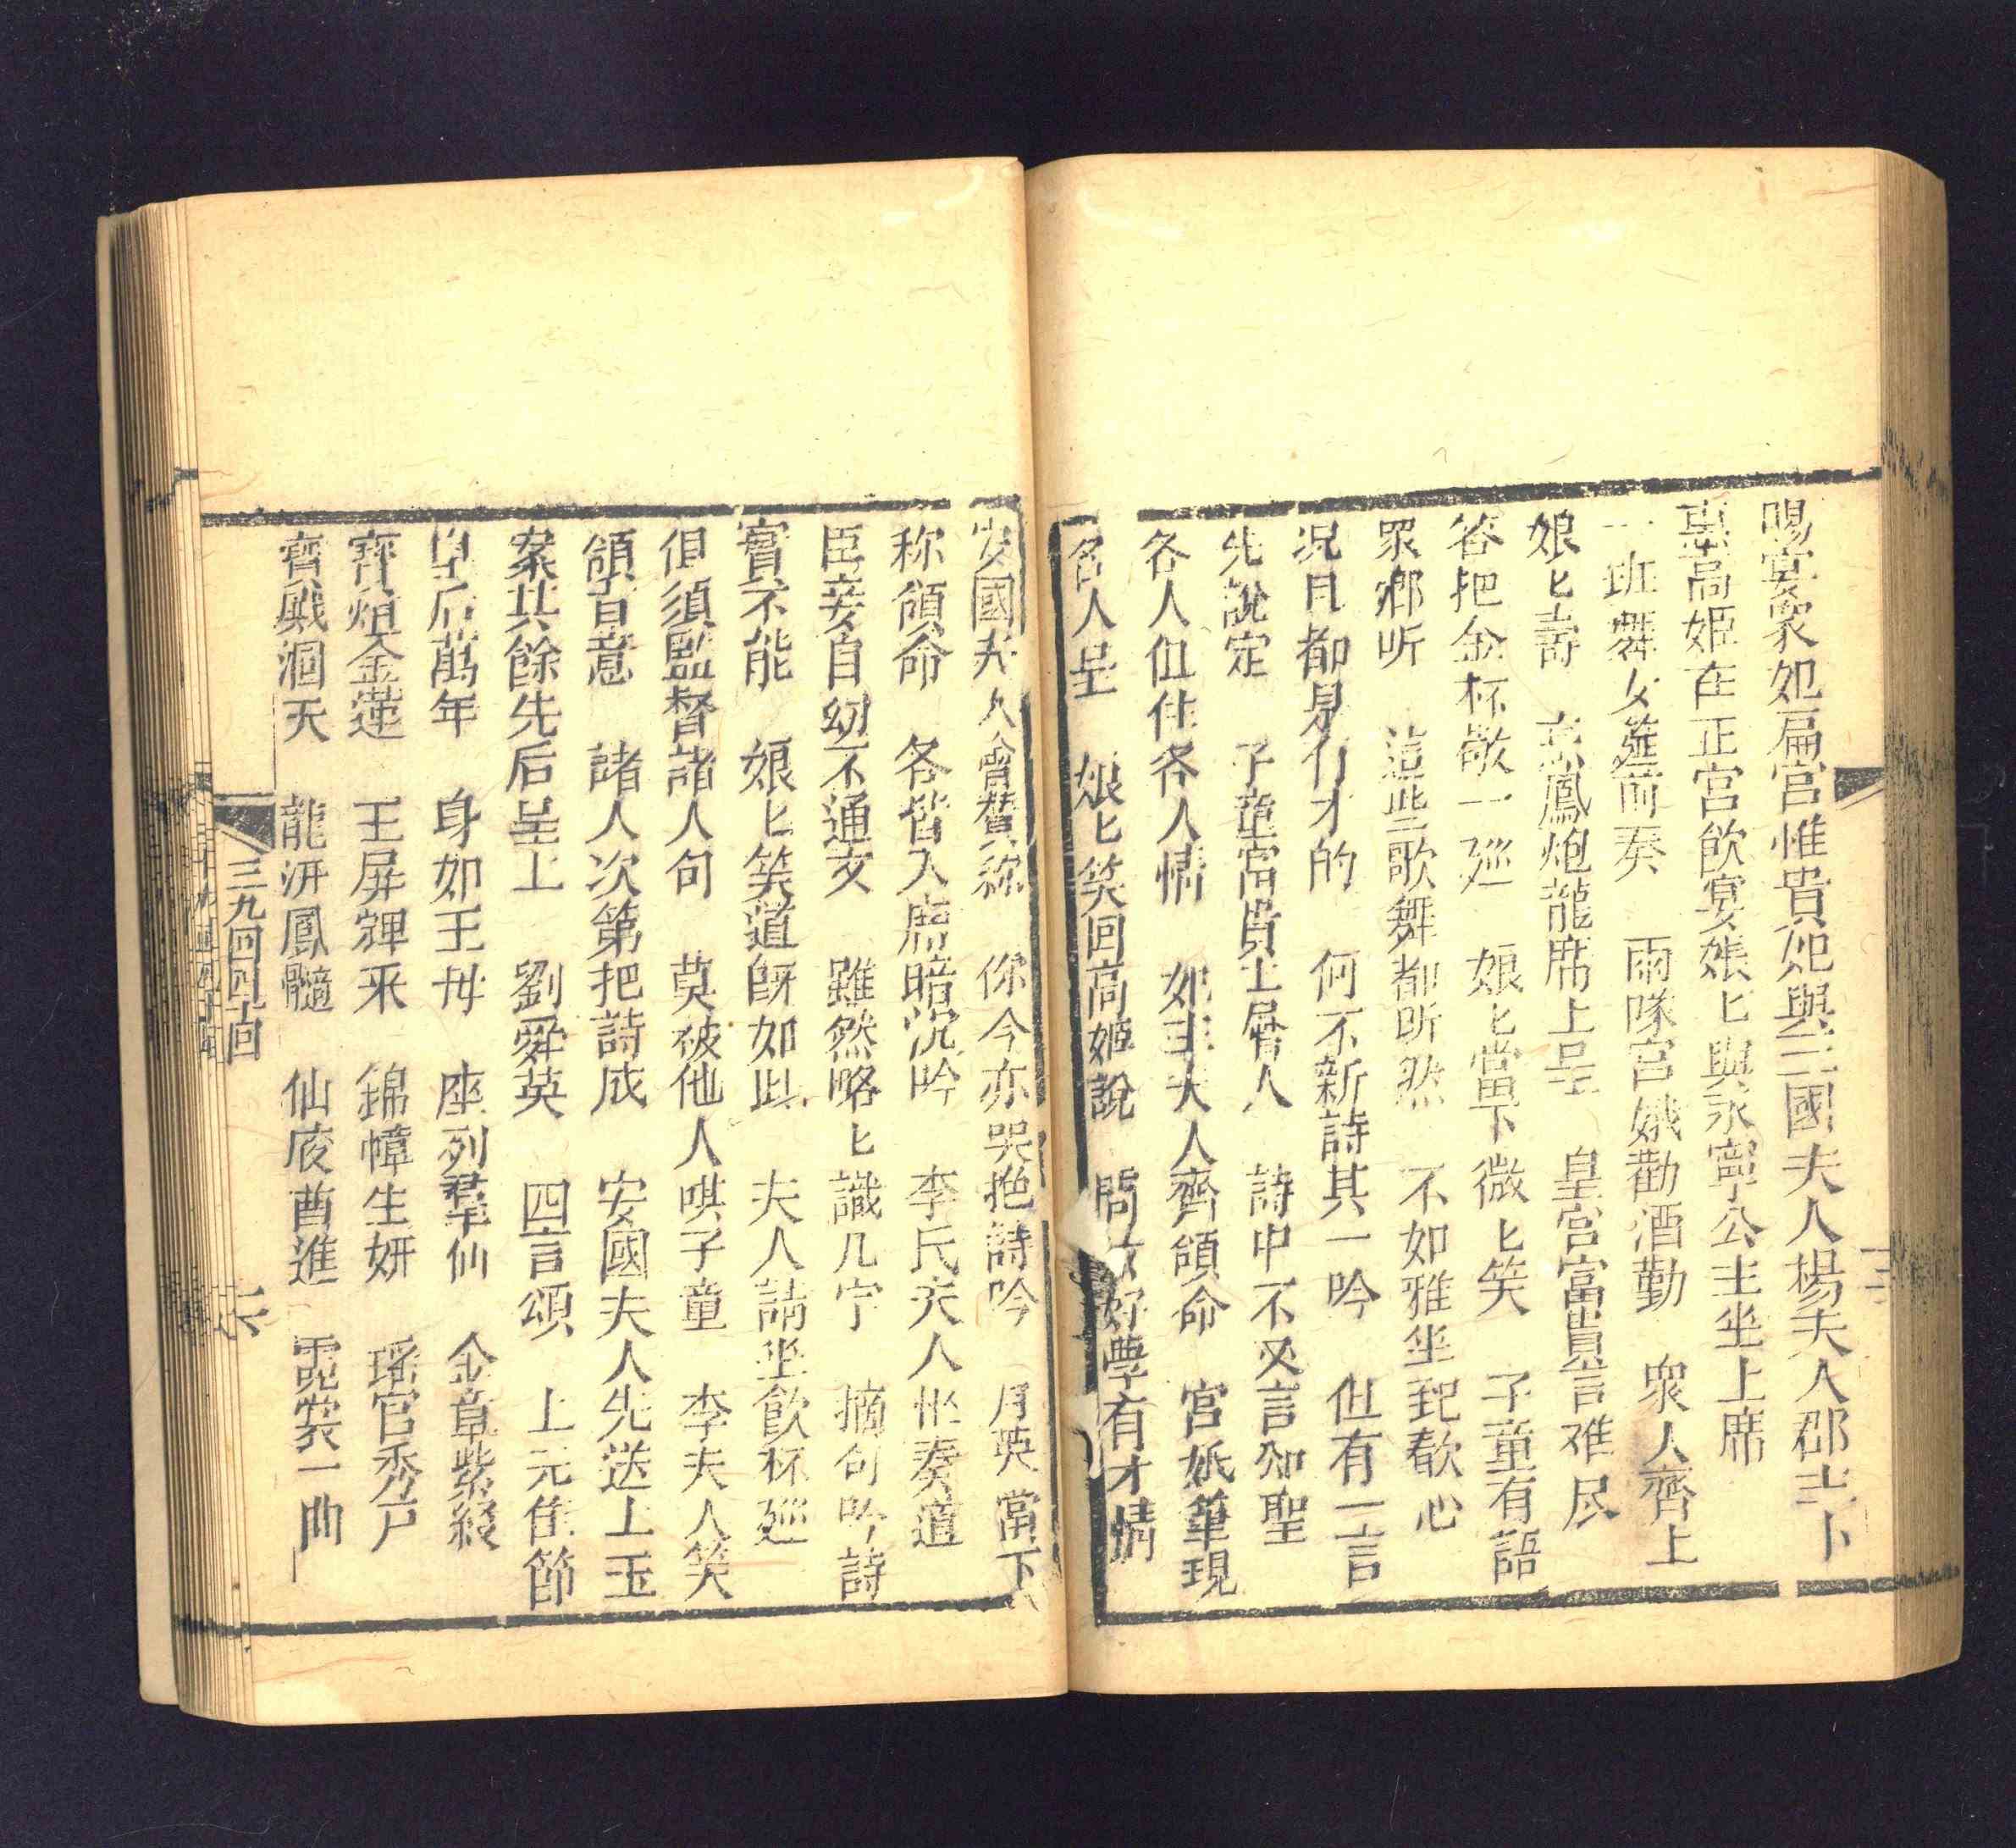 賜宴衆妃扁宮惟貴妃與三國夫人楊夫人郡主卜
惠高姬在正宮飲宴娘匕與永寧公主坐上席
一班舞女筵前奏 兩隊宮娥勸酒勤 衆人齊上
娘匕壽 鳳炮龍席上呈 皇宮富貴言难尽
各把金杯敬一廵 娘匕當下微匕笑 子童有語
眾鄉听 這些歌舞都听然 不如雅坐 歡心
况且都是有才的 何不新詩其一吟 但有一言
先說定 子童富貴上層人 詩中不又言如聖
各人但住各人情 妃主夫人齊領命 宮娥筆現
各人呈 娘匕笑回高姬說 問 好學有才情
安國夫人會贊称 你今亦 詩吟 月英當下
称領命 各皆入席暗沉吟 李氏夫人 奏道
臣妾自幼不通文 雖然略匕識几字 摘句吟詩
實不能 娘匕笑道既如此 夫人請坐飲杯廵
但須監督諸人句 莫被他人哄子童 李夫人笑
領旨意 諸人次第把詩成 安國夫人先送上玉
案其餘先后呈上 劉舜英 四言頌 上元佳節
皇后萬年 身如王母 座列羣仙 金章紫綬
寶炬金蓮 王屏 采 錦幛生妍 瑤官秀戶
齊 天 龍 鳳髓 仙 酋進 霓裳一曲
三九四四十回
六